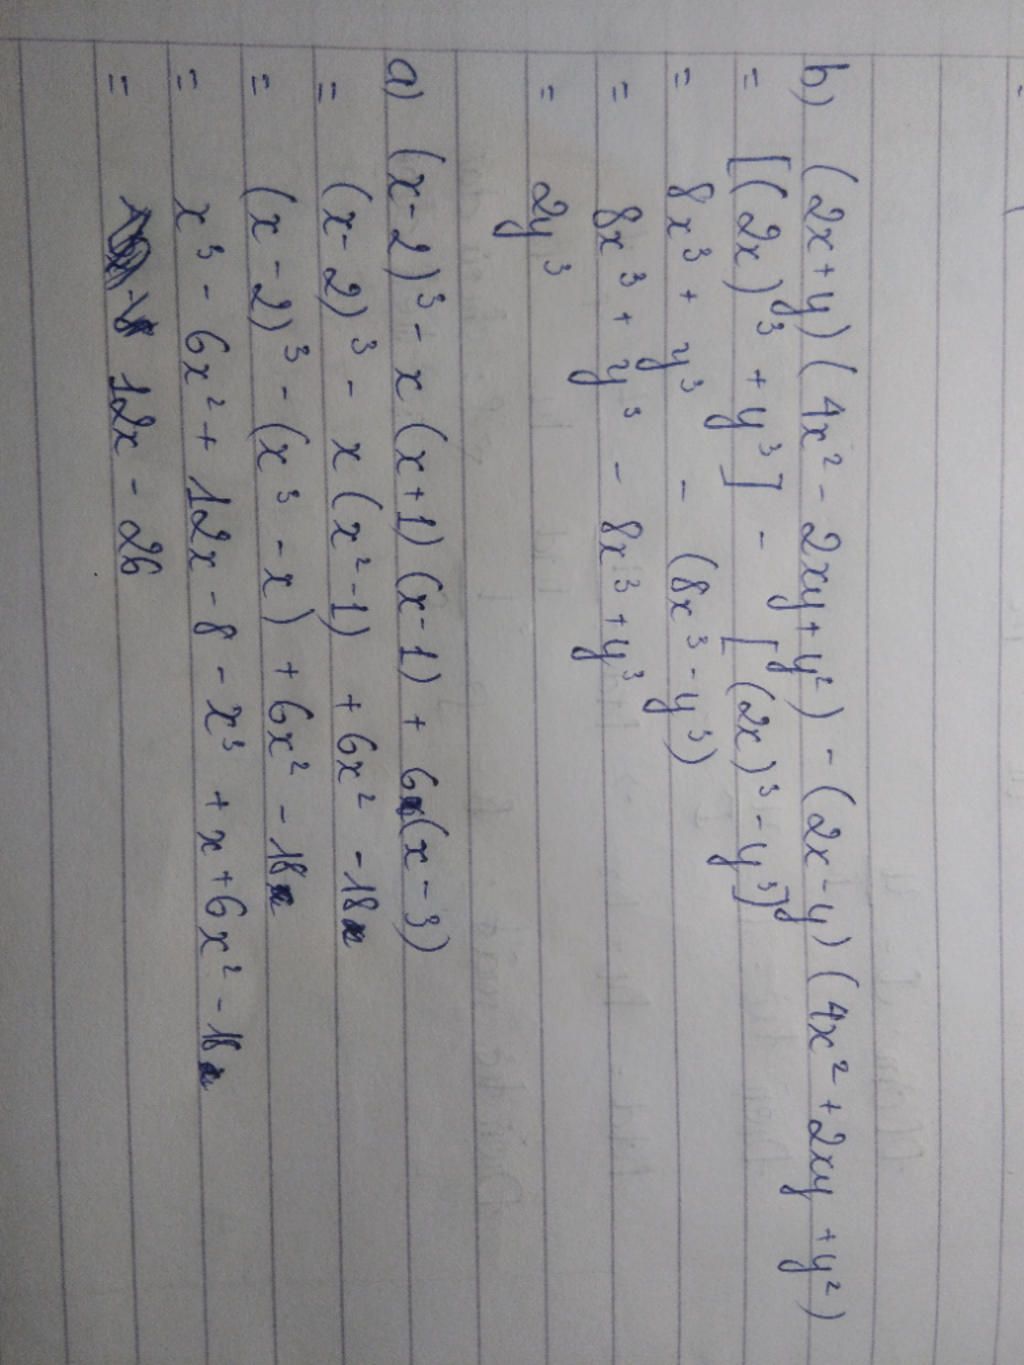 b) (2x+y)(4x² - 2xy+y²) - (2x-y)(4x²+2xy+y²)
= [(2x)³ + y³] - [(2x)³ - y³]
= 8x³ + y³ - (8x³ - y³)
= 8x³ + y³ - 8x³ + y³
= 2y³
a) (x-2)³ - x(x+1)(x-1) + 6x(x-3)
= (x-2)³ - x(x²-1) + 6x² - 18x
= (x-2)³ - (x³ - x) + 6x² - 18x
= x³ - 6x² + 12x - 8 - x³ + x + 6x² - 18x
= 12x - 26